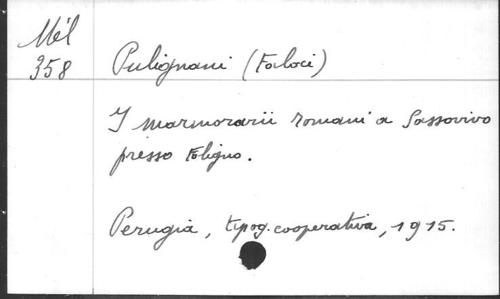 Mél
358
Pulignani (Faloci)
I marmorarii romani a Sassovivo
presso Foligno.
Perugia, tipog. cooperativa, 1915.